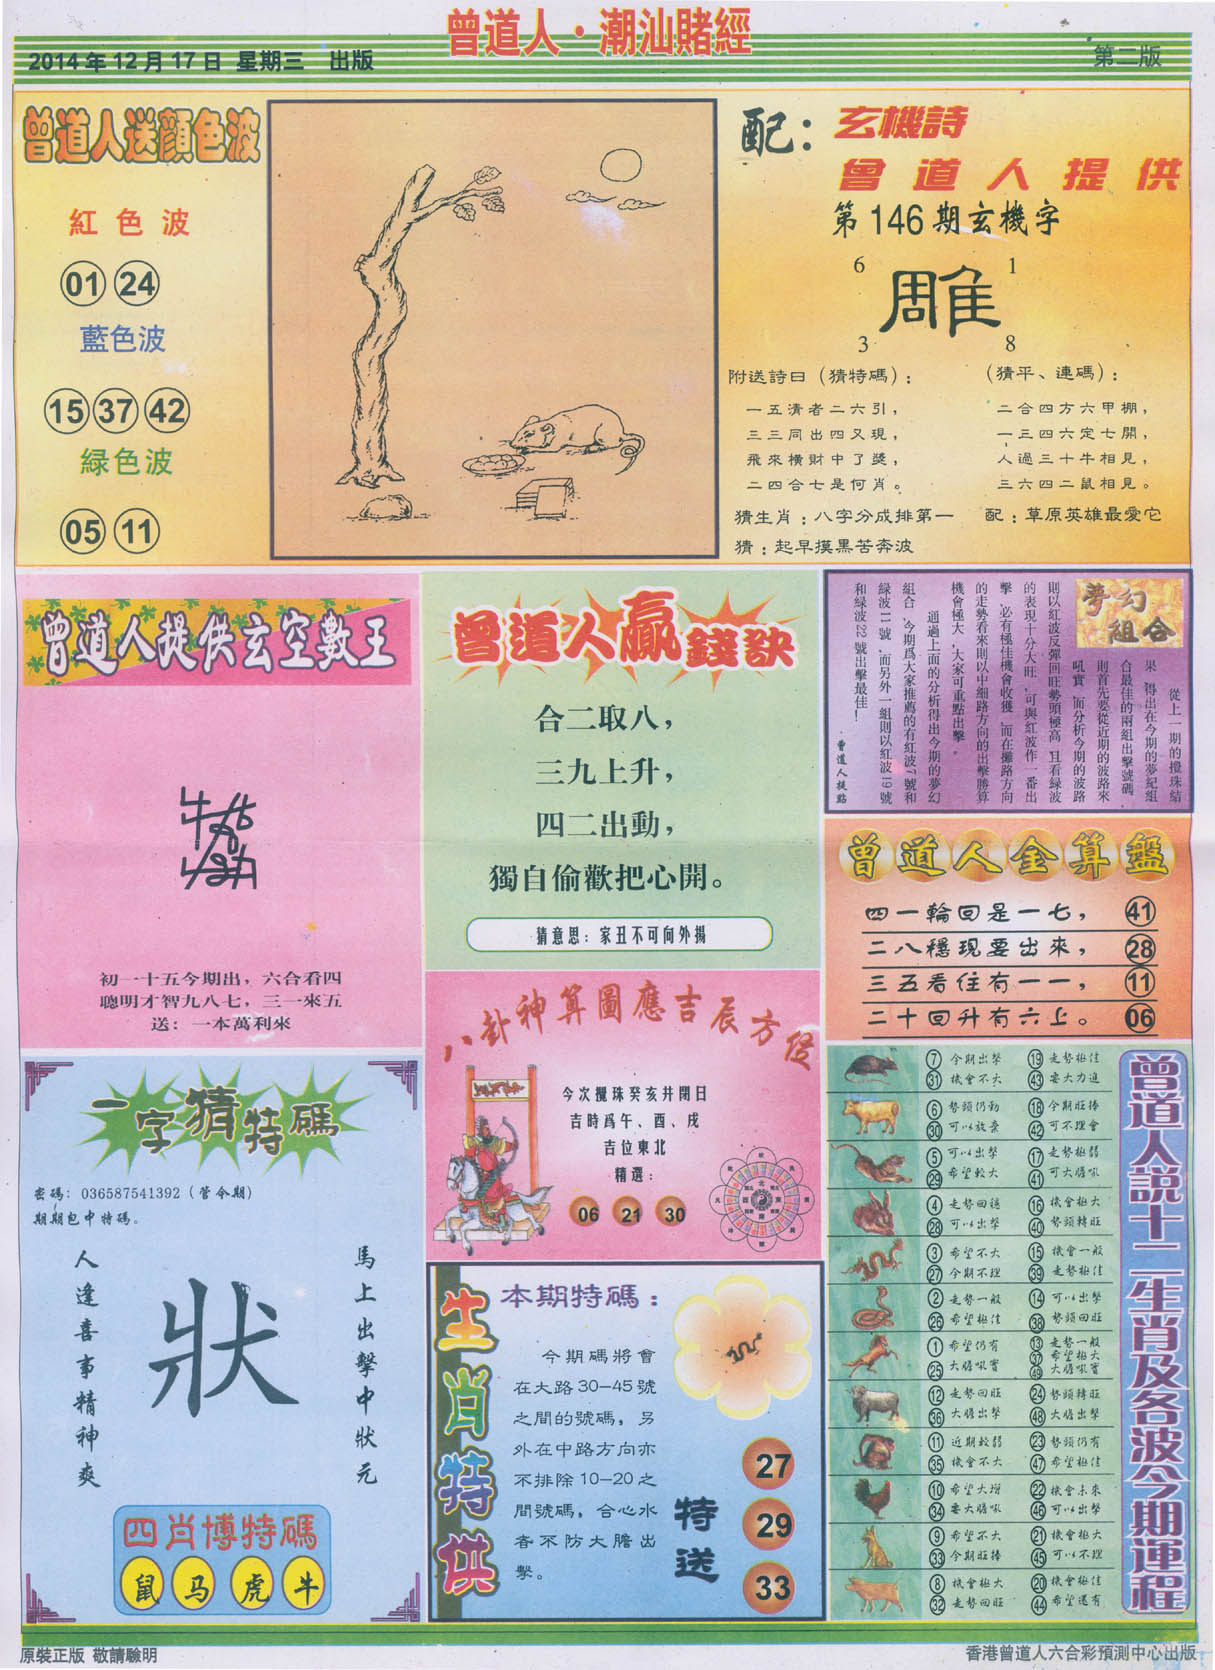 曾道人·潮汕賭經
2014年12月17日 星期三 出版
第二版
曾道人送顔色波
紅色波
01 24
藍色波
15 37 42
緑色波
05 11
配：
玄機詩
曾道人提供
第146期玄機字
6 1
雕
3 8
附送詩曰（猜特碼）：
一五清者二六引，
三三同出四又現，
飛來橫財中了獎，
二四合七是何肖。
（猜平、連碼）：
二合四方六甲棚，
一三四六定七開，
人過三十牛相見，
三六四二鼠相見。
猜生肖：八字分成排第一
配：草原英雄最愛它
猜：起早摸黑苦奔波
曾道人提供玄空數王
初一十五今期出，六合看四
聰明才智九八七，三一來五
送：一本萬利來
曾道人贏錢訣
合二取八，
三九上升，
四二出動，
獨自偷歡把心開。
猜意思：家丑不可向外揚
夢幻
組合
從上一期的攪珠結
果，得出在今期的夢紀組
合最佳的兩組出擊號碼，
則首先要從近期的波路來
吼實，而分析今期的波路
則以紅波反彈回旺勢頭極高，且看緑波
的表現十分大旺，可與紅波作一番出
擊，必有極佳機會收獲，而在攤路方向
的走勢看來則以中細路方向的出擊勝算
機會極大，大家可重點出擊。
通過上面的分析得出今期的夢幻
組合，今期爲大家推薦的有紅波7號和
緑波11號，而另外一組則以紅波19號
和緑波22號出擊最佳！
·曾道人提點
曾道人金算盤
四一輪回是一七， 41
二八穩現要出來， 28
三五看住有一一， 11
二十回升有六上。 06
一字猜特碼
密碼：036587541392（管令期）
期期包中特碼。
馬上出擊中狀元
狀
人逢喜事精神爽
四肖博特碼
鼠 马 虎 牛
八卦神算圖應吉辰方位
今次攪珠癸亥井閉日
吉時爲午、酉、戌
吉位東北
精選：
06 21 30
生肖特供
本期特碼：
今期碼將會
在大路30—45號
之間的號碼，另
外在中路方向亦
不排除10—20之
間號碼，合心水
者不防大膽出
擊。
特送
27
29
33
曾道人説十二生肖及各波今期運程
7 今期出擊 19 走勢極佳
31 機會不大 43 要大力進
6 勢頭仍動 18 今期旺捧
30 可以放棄 42 可不理會
5 可以出擊 17 走勢極弱
29 希望較大 41 可大膽吼
4 走勢回穩 16 機會極大
28 可以出擊 40 勢頭轉旺
3 希望不大 15 機會一般
27 今期不理 39 走勢極佳
2 走勢一般 14 可以出擊
26 希望極佳 38 勢頭回旺
1 希望仍有 13 走勢一般
37 希望極大
25 大膽吼實 49 大膽吼實
12 走勢回旺 24 勢頭轉旺
36 大膽出擊 48 大膽出擊
11 近期較弱 23 勢頭仍有
35 機會不大 47 希望極佳
10 希望大增 22 機會未來
34 要大膽吼 46 可以出擊
9 希望不大 21 機會極大
33 今期旺捧 45 可以不理
8 機會極大 20 機會極佳
32 走勢回旺 44 希望還有
原裝正版 敬請驗明
香港曾道人六合彩預測中心出版